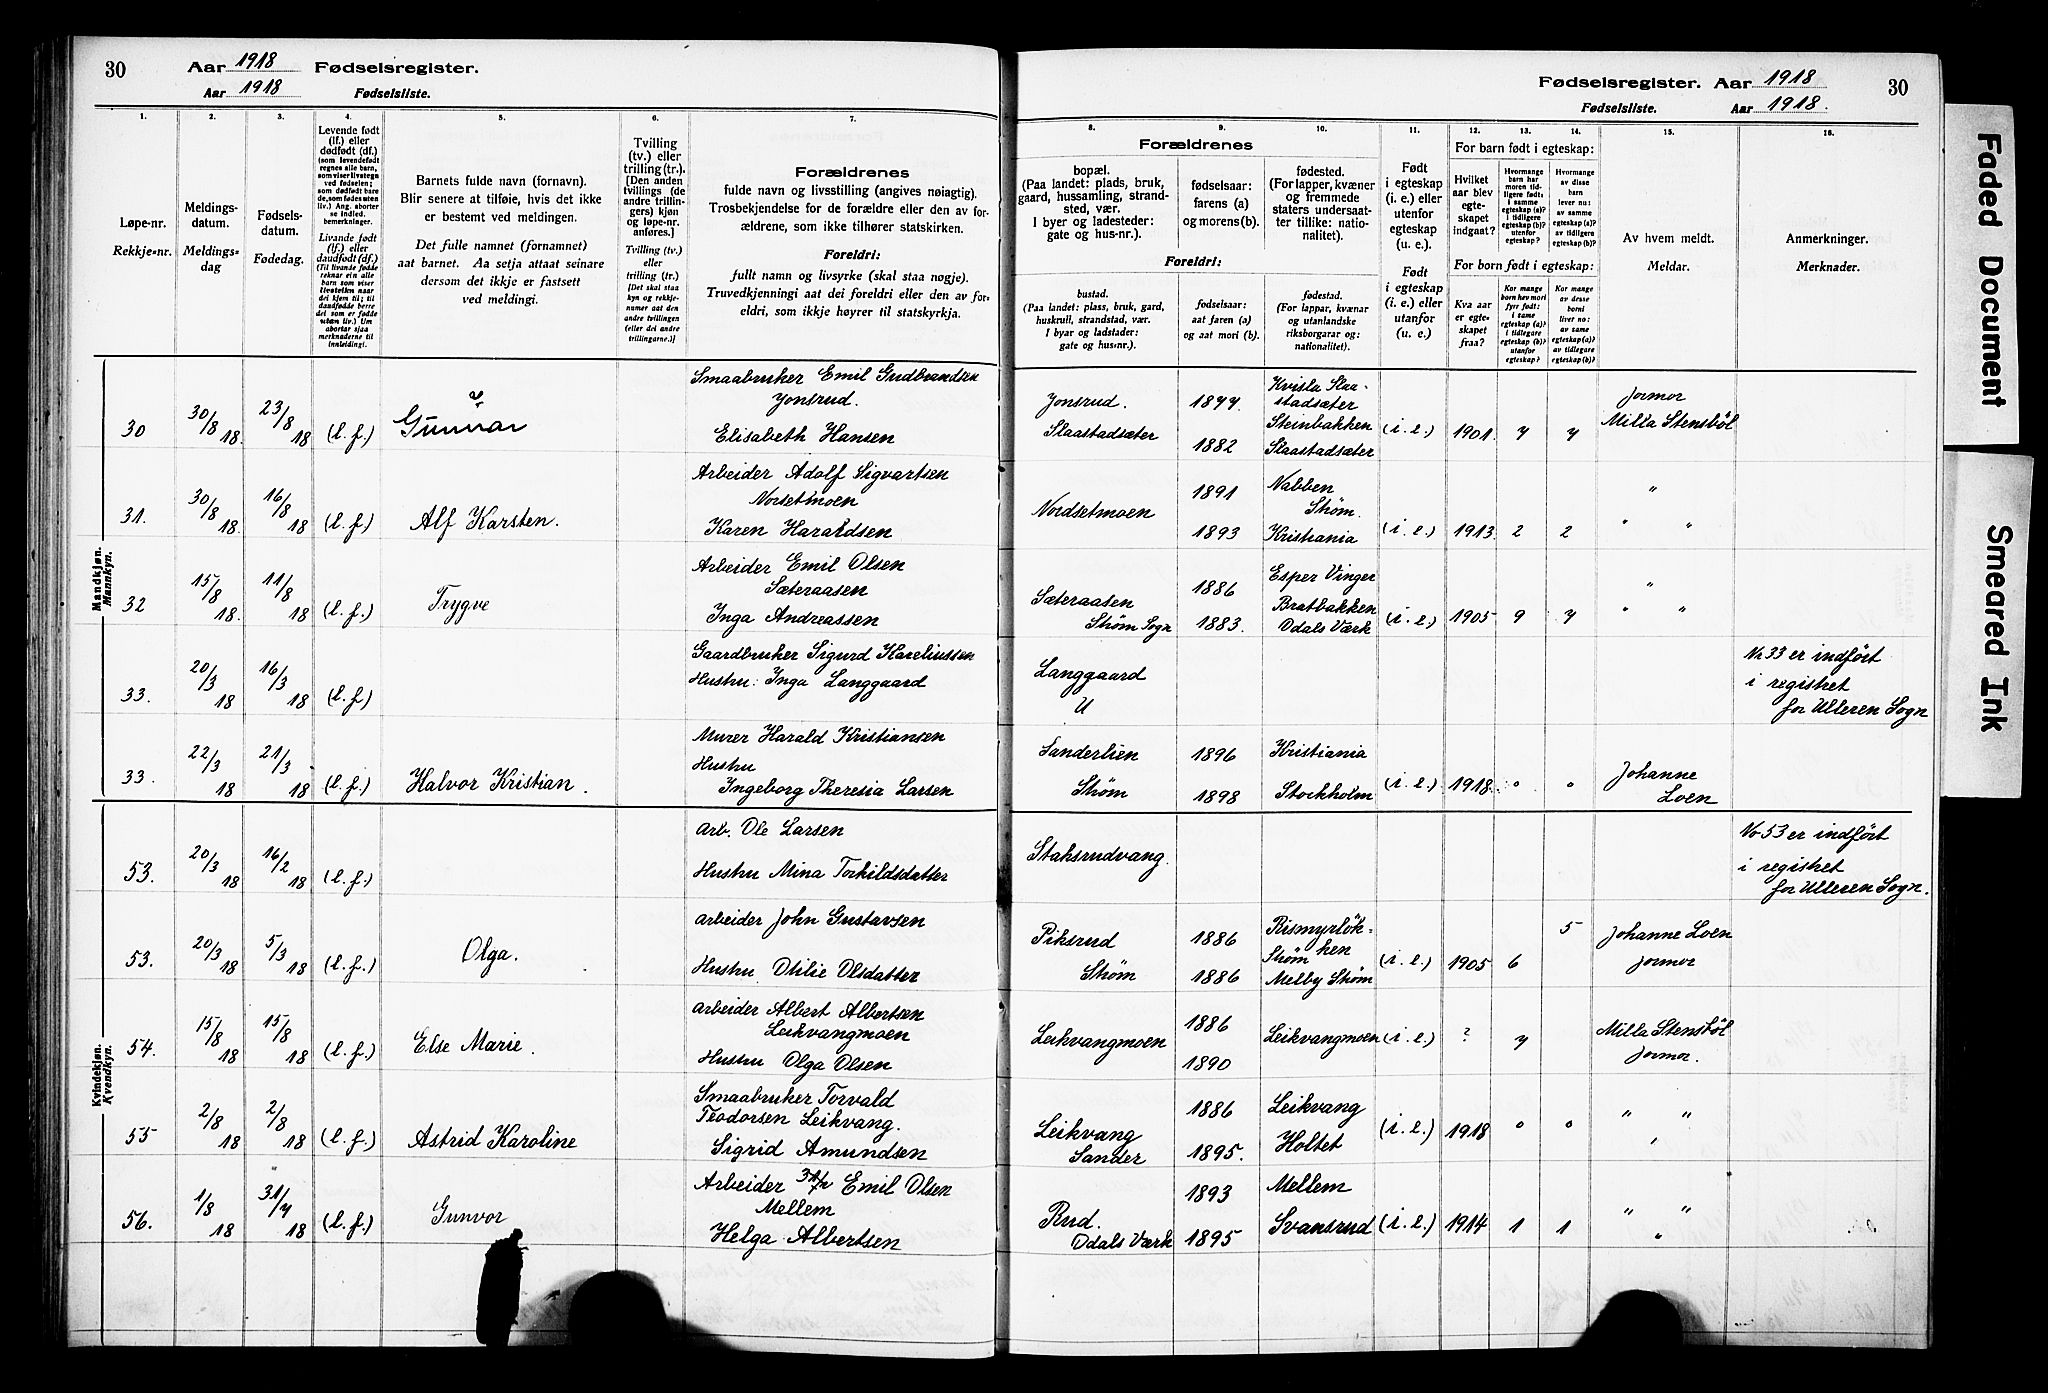 30 Aar 1918 Fødselsregister.
Aar 1918 Fødselsliste.
1.
2.
3.
4.
5.
6.
7.
Løpe-nr.
Rekkje-nr.
Meldings-
datum.
Meldings-
dag
Fødsels-
datum.
Fødedag.
Levende født
(lf.) eller
dødfødt (df.)
(som levendefødt
regnes alle barn,
som viser livstegn
ved fødselen;
som dødfødt de
de, som fødes uten
liv.) Ang. aborter
se indled.
bemerkninger.
Livande født
(lf.) eller
daudfødt (df.)
Barnets fulde navn (fornavn).
Blir senere at tilføie, hvis det ikke
er bestemt ved meldingen.
Det fulle namnet (fornamnet)
aat barnet. Aa setja attaat seinare
dersom det ikkje er fastsett
ved meldingi.
Tvilling
(tv.) eller
trilling (tr.).
[Den anden
tvillings (de
andre trillin-
gers) kjøn
og løpe-nr.
anføres.]
Tvilling (tv.)
eller
trilling (tr.)
[Det skal staa
kyn og rekkje-
numer aat den
andre tvillingen
(eller dei andre
trillingarne.)]
Forældrenes
fulde navn og livsstilling (angives nøiagtig).
Trosbekjendelse for de forældre eller den av for-
ældrene, som ikke tilhører statskirken.
Foreldri:
fullt namn og livsyrke (skal staa nøgje).
Truvedkjenningi aat dei foreldri eller den av for-
eldri, som ikkje høyrer til statskyrkja.
Mandkjøn.
Mannkyn.
30 30/8 18. 23/8 18 (l. f.) Gunvar
Smaabruker Emil Gudbrandsen
Jonsrud.
Elisabeth Hansen
31. 30/8 18. 16/8 18 (l. f.) Alf Karsten.
Arbeider Adolf Sigvartsen
Norsetmoen
Karen Haraldsen
32 15/8 18. 11/8 18 (l. f.) Trygve
Arbeider Emil Olsen
Sæteraasen
Inga Andreassen
33. 20/3 18 16/3 18 (l. f.)
Gaardbruker Sigurd Kareliussen
Hustru: Inga Langgaard
33. 22/3 18 21/3 18 (l. f.) Halvor Kristian.
Murer Harald Kristiansen
Hustru
Ingeborg Theresia Larsen
Kvindekjøn.
Kvendkyn.
53. 20/3 18 16/2 18 (l. f.)
Arb. Ole Larsen
Hustru Mina Torkildsdatter
53. 20/3 18 5/3 18 (l. f.) Olga.
Arbeider John Gustavsen
Hustru Otilie Olsdatter
54. 15/8 18 15/8 18 (l. f.) Else Marie.
Arbeider Albert Albertsen
Leikvangmoen
Hustru Olga Olsen
55 2/8 18 2/8 18 (l. f.) Astrid Karoline
Smaabruker Torvald
Teodorsen Leikvang.
Sigrid Amundsen
56. 1/8 18 31/7 18 (l. f.) Gunvor
Arbeider Emil Olsen
Mellem
Helga Albertsen
Fødselsregister. Aar 1918 30
Fødselsliste. Aar 1918.
8.
9.
10.
11.
12.
13.
14.
15.
16.
Forældrenes
bopæl.
(Paa landet: plads, bruk,
gaard, hussamling, strand-
sted, vær.
I byer og ladesteder:
gate og hus-nr.).
fødselsaar:
farens (a)
og morens (b).
fødested.
(For lapper, kvæner
og fremmede
staters undersaat-
ter tillike: natio-
nalitet).
Foreldri:
bustad.
(Paa landet: plass, bruk, gard,
huskrull, strandstad, vær.
I byar og ladstader:
gate og hus-nr.).
fødselsaar:
aat faren (a)
og aat mori (b).
fødestad.
(For lappar, kvænar
og utanlandske
riksborgarar og:
nationalitet).
Født
i egteskap
(i. e.) eller
utenfor
egteskap
(u. e.).
Født
i egteskap
(i. e.) eller
utanfor
(u. e.)
For barn født i egteskap:
Hvilket
aar blev
egte-
skapet
indgaat?
Hvormange
barn har
moren tid-
ligere født:
i samme
egteskap (a)?
i tidligere
egteskap (b)?
utenfor
egteskap?
Hvormange
av disse
barn
lever nu:
av samme
egteskap (a)?
av tidligere
egteskap (b)?
For born født i egteskap:
Kva aar
er egte-
skapet
fraa?
Kor mange
born hev mori
fyrr født:
i same
egteskap (a)?
i tidlegare
egteskap (b)?
utanfor
egteskap?
Kor mange
av desse
borni
liver no:
av same
egteskap (a)?
av tidlegare
egteskap (b)?
Av hvem meldt.
Meldar.
Anmerkninger.
Merknader.
Jonsrud.
Slaastadsæter
1877.
1882
Kvisla Slaa-
stadsæter
Steinbakken
Slaastadsæter
(i. e.) 1901. 7 7
Jormor
Milla Stensböl
Nordsetmoen
1891
1893
Nabben
Strøm.
Kristiania
(i. e.) 1913 2 2
" " "
Sæteraasen
Strøm Sogn
1886
1883.
Esper Vinger
Bratbakken
Odals Værk
(i. e.) 1905 9 7
" " "
Langgaard
U
No 33 er indført
i registret
for Ulleren Sogn
Sanderlien
Strøm
1896
1898
Kristiania
Stockholm
(i. e.) 1918. " "
Johanne
Loen
Staksrudvang.
No 53 er indført
i registret
for Ulleren Sogn.
Piksrud
Strøm
1886
1886
Rismyrløk-
ken
Strøm
Melby Strøm
(i. e.) 1905 6 5
Johanne Loen
Jormor
Leikvangmoen
1886
1890
Leikvangmoen
(i. e.) ? 7
Milla Stensböl
Jormor.
Leikvang
Sander
1886
1895.
Leikvang
Holtet
(i. e.) 1918 " "
" " "
Rud.
Odals Værk
1893
1895
Mellem
Svansrud
(i. e.) 1914 1 1
" " "
Faded Document
Smeared Ink